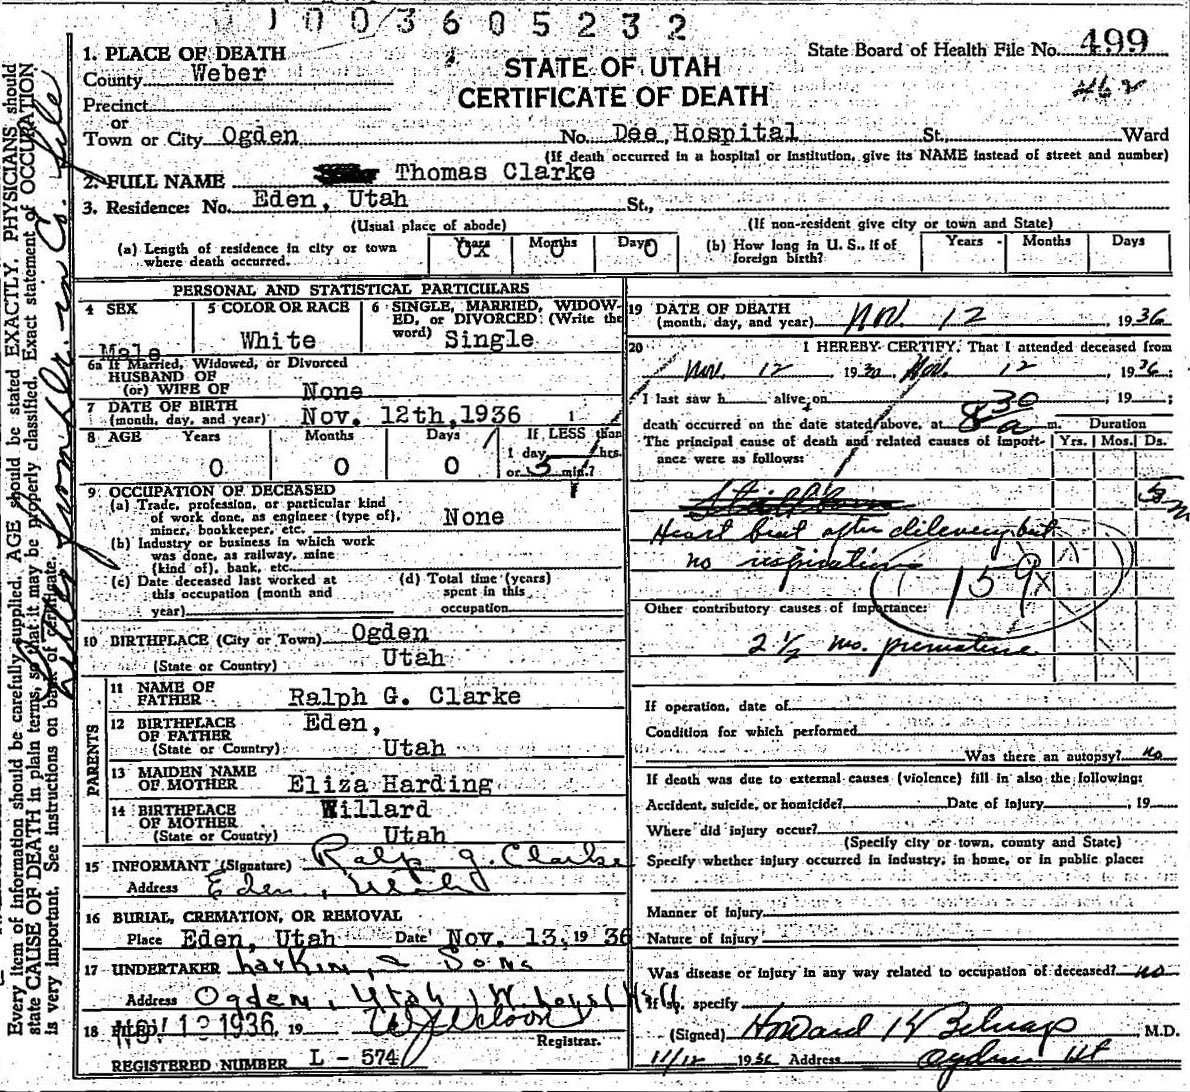 1003605232
State Board of Health File No. 499
462
STATE OF UTAH
CERTIFICATE OF DEATH
1. PLACE OF DEATH
County Weber
Precinct
or
Town or City Ogden No. Dee Hospital St. Ward
(If death occurred in a hospital or institution, give its NAME instead of street and number)
2. FULL NAME Thomas Clarke
3. Residence: No. Eden, Utah St.,
(Usual place of abode) (If non-resident give city or town and State)
(a) Length of residence in city or town where death occurred. Years 0x Months 0 Days 0
(b) How long in U. S., if of foreign birth? Years Months Days
PERSONAL AND STATISTICAL PARTICULARS
4 SEX Male
5 COLOR OR RACE White
6 SINGLE, MARRIED, WIDOWED, or DIVORCED: (Write the word) Single
6a If Married, Widowed, or Divorced
HUSBAND OF
(or) WIFE OF None
7 DATE OF BIRTH
(month, day, and year) Nov. 12th, 1936
8 AGE Years 0 Months 0 Days 0
If LESS than 1 day hrs.
or 5 min.?
9 OCCUPATION OF DECEASED
(a) Trade, profession, or particular kind
of work done, as engineer (type of),
miner, bookkeeper, etc. None
(b) Industry or business in which work
was done, as railway, mine
(kind of), bank, etc.
(c) Date deceased last worked at
this occupation (month and
year)
(d) Total time (years)
spent in this
occupation
10 BIRTHPLACE (City or Town) Ogden
(State or Country) Utah
PARENTS
11 NAME OF FATHER Ralph G. Clarke
12 BIRTHPLACE OF FATHER Eden,
(State or Country) Utah
13 MAIDEN NAME OF MOTHER Eliza Harding
14 BIRTHPLACE OF MOTHER Willard
(State or Country) Utah
15 INFORMANT (Signature) Ralp G. Clarke
Address Eden, Utah
16 BURIAL, CREMATION, OR REMOVAL
Place Eden, Utah Date Nov. 13, 1936
17 UNDERTAKER Larkin & Sons
Address Ogden, Utah
18 Filed NOV 1 1936, 19
Registrar.
REGISTERED NUMBER L - 574
19 DATE OF DEATH
(month, day, and year) Nov. 12, 1936
20 I HEREBY CERTIFY, That I attended deceased from
Nov. 12 1936 Nov. 12, 1936;
I last saw h alive on , 19 ;
death occurred on the date stated above, at 8 30 a m.
The principal cause of death and related causes of importance were as follows:
Duration
Yrs. Mos. Ds.
Stillborn
5 m
Heart beat after dilevery but
no respirations
159
Other contributory causes of importance:
2 1/2 mo. premature
If operation, date of
Condition for which performed
Was there an autopsy? no
If death was due to external causes (violence) fill in also the following:
Accident, suicide, or homicide? Date of injury , 19
Where did injury occur?
(Specify city or town, county and State)
Specify whether injury occurred in industry, in home, or in public place:
Manner of injury
Nature of injury
Was disease or injury in any way related to occupation of deceased? no
If so, specify
(Signed) Howard K Belnap M.D.
11/12 1936 Address Ogden Ut
Every item of information should be carefully supplied. AGE should be stated EXACTLY. PHYSICIANS should
state CAUSE OF DEATH in plain terms, so that it may be properly classified. Exact statement of OCCUPATION
is very important. See instructions on back of certificate.